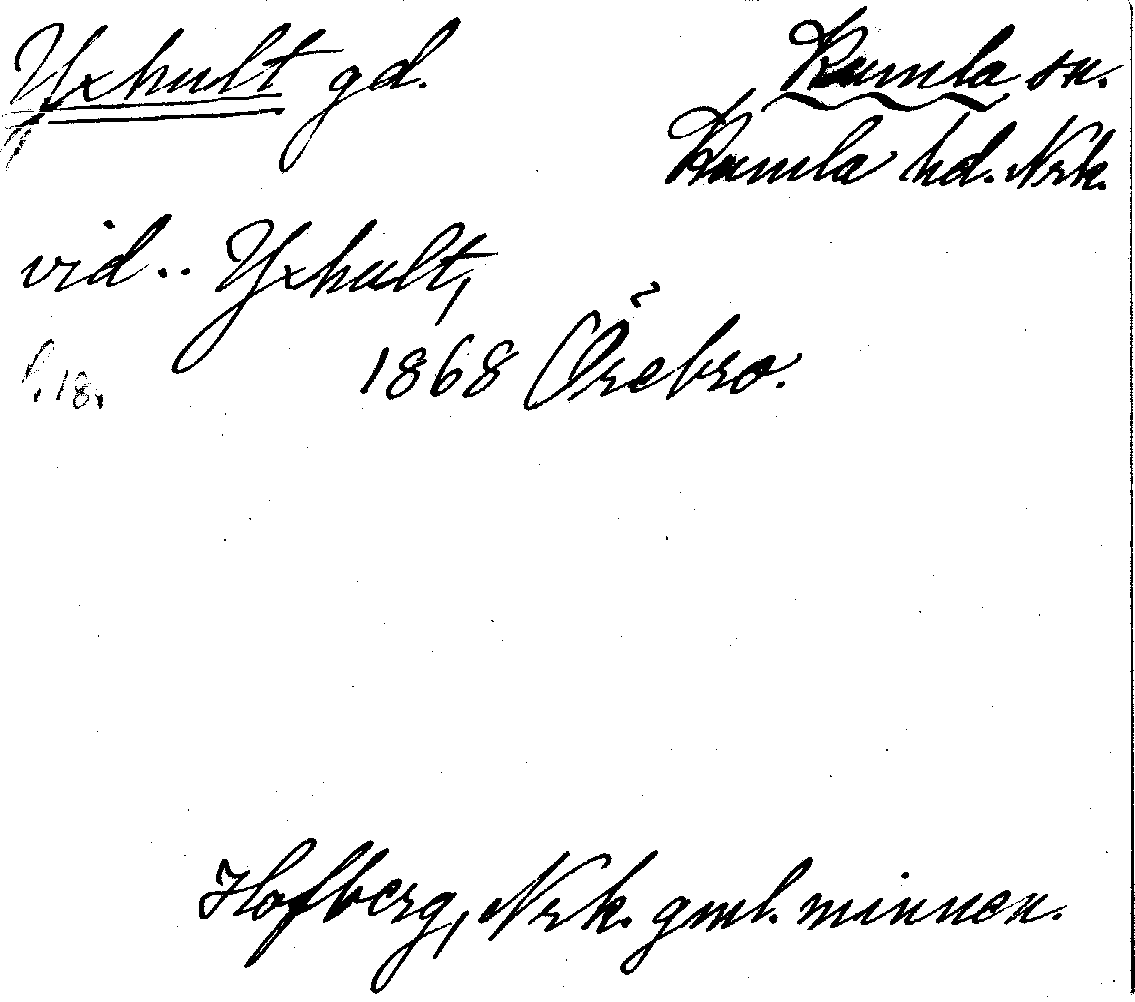 Yxhult gd.
Kumla sn.
Kumla hd. Nrk.
vid .. Yxhult,
s. 18. 1868 Örebro.
Hofberg, Nrk. gml. minnen.